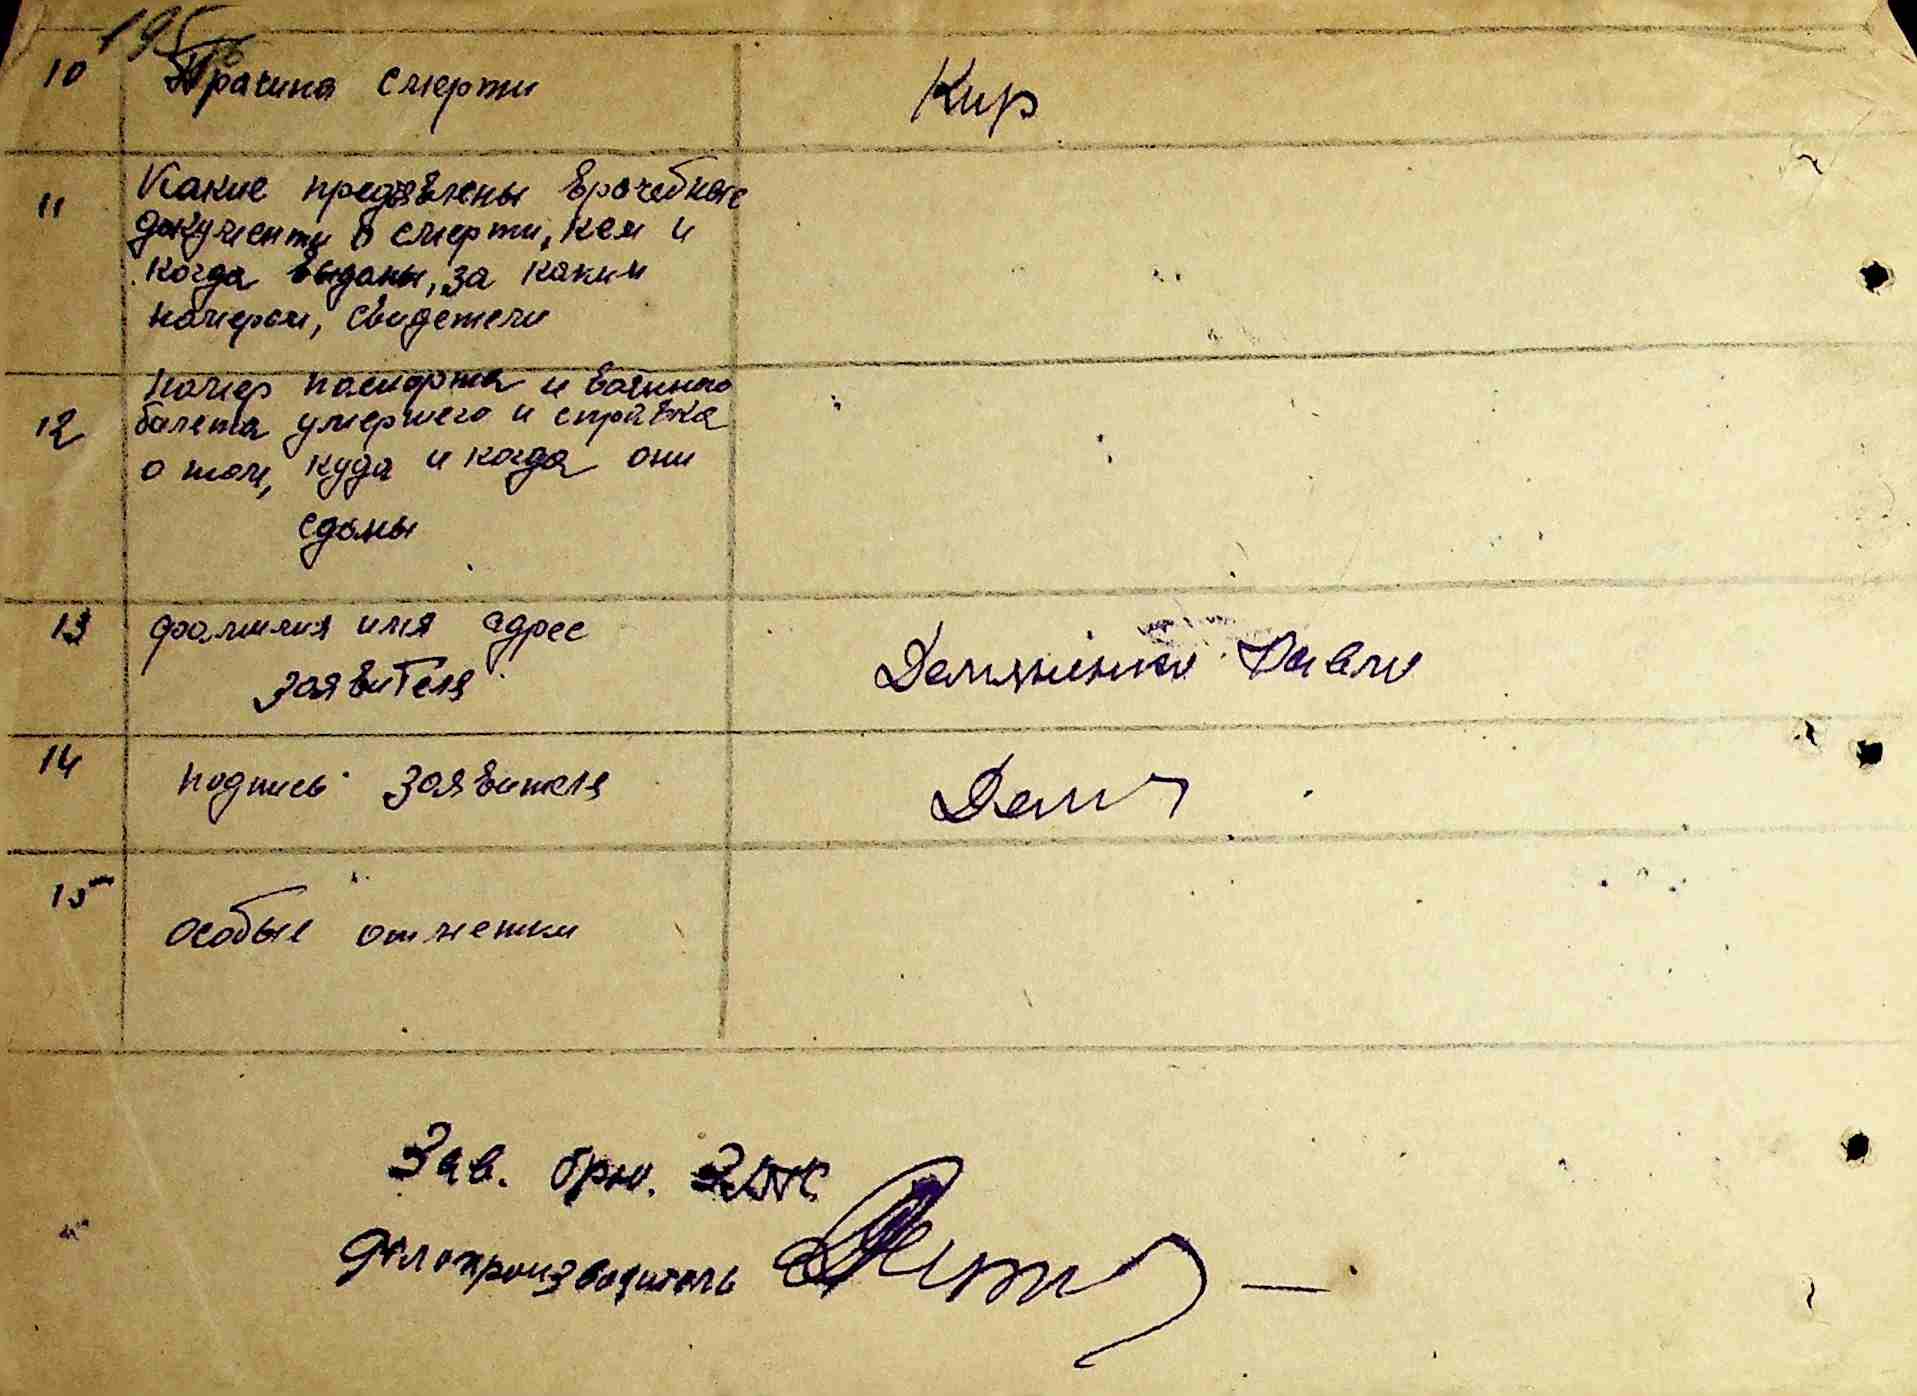 195
10 Прачина смерти Кир
11 Какие предъявлены врачебные
документи о смерти, кем и
когда выданы, за каким
намером, свидетели
12 намер паспорта и воинного
билета умершего и справка
о том, куда и когда они
сданы
13 фамилия имя адрес
заявителя Демяненко Павло
14 подпись заявителя Дем
15 особые отметки
Зав. бюро
делопроизводитель